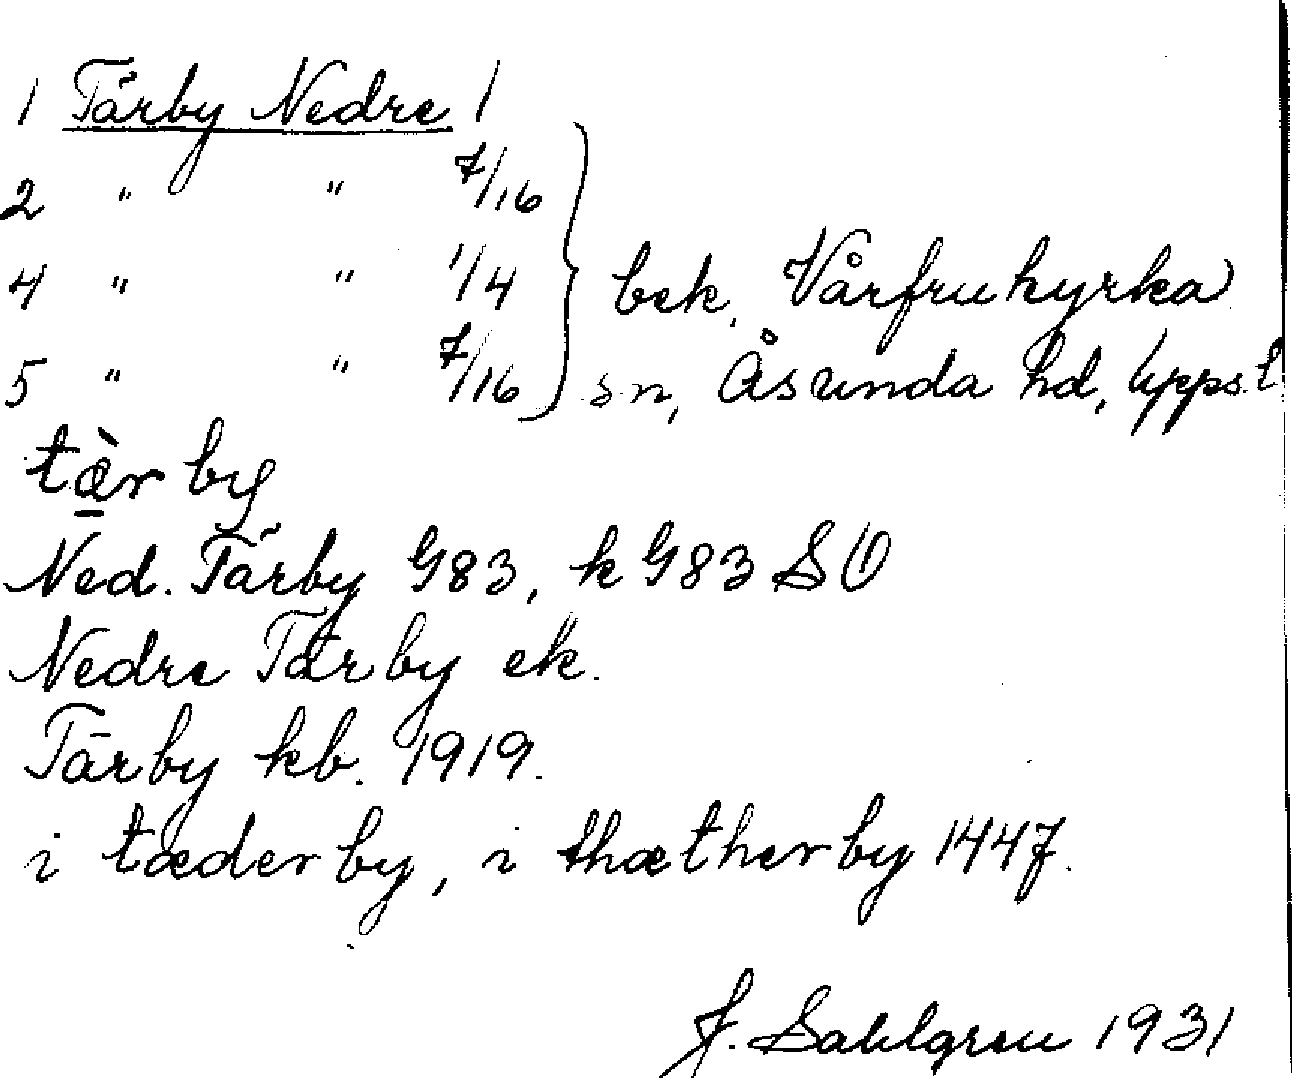 1 Tärby Nedre 1
2 " " 7/16
4 " " 1/4
5 " " 7/16
bek. Vårfrukyrka
sn, Åsunda hd, Uppsl
tæ̀r by
Ned. Tärby G83, k G83 SO
Nedre Tärby ek.
Tärby kb. 1919.
i tæderby, i thætherby 1447.
J. Sahlgren 1931